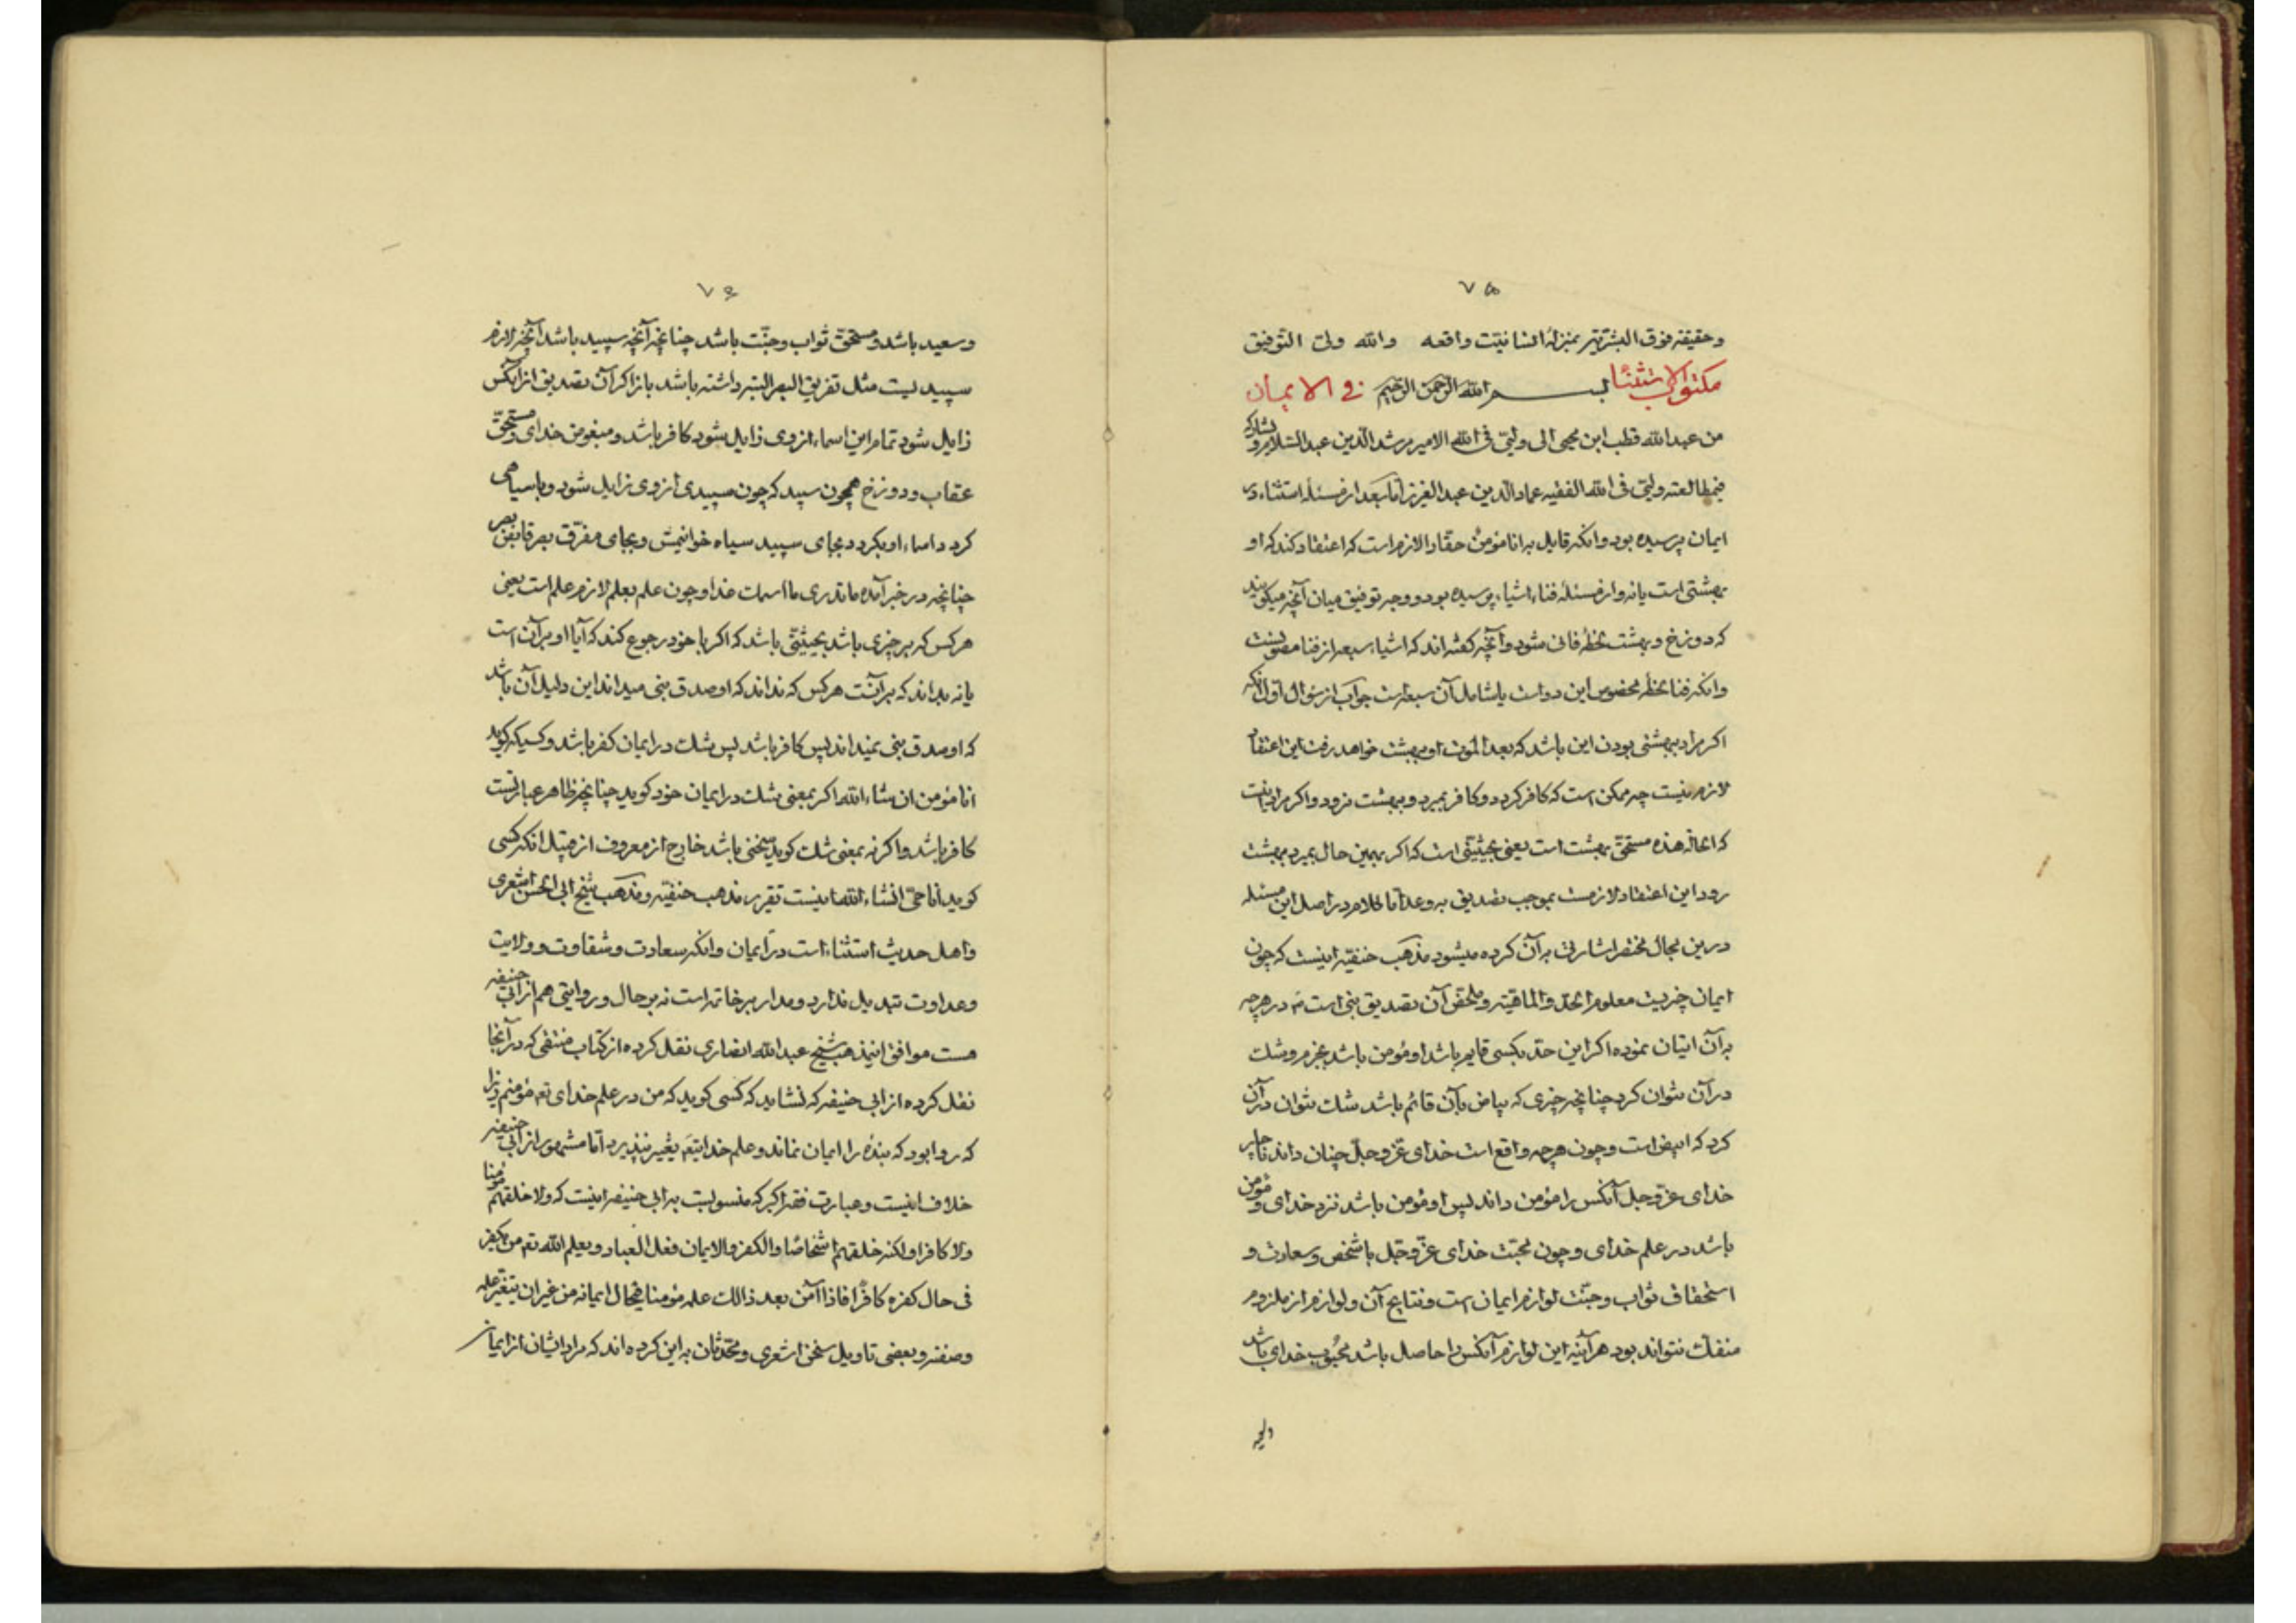 ٧۵
وحقیقته فوق البشریّة بمنزلهٔ انسانیّت واقعه والله ولیّ التوفیق
مکتوب الاستثناء بسم الله الرحمن الرحیم فی الایمان
من عبدالله قطب ابن محیی الی ولیّی فی الله الامیر مرشدالدین عبدالسلام ویشارکه
فی مطالعته ولیّی فی الله الفقیه عمادالدین عبدالعزیز امّا بعد از مسئلهٔ استثناء در
ایمان پرسیده بود وانکه قایل به انا مؤمن حقّا را لازم است که اعتقاد کند که او
بهشتی است یا نه واز مسئلهٔ فناء اشیاء پرسیده بود و وجه توفیق میان آنچه میکویند
که دوزخ وبهشت لحظهٔ فانی شود وآنچه کفته‌اند که اشیاء سبعه از فنا مصونست
وانکه فناء لحظه مخصوص این دواست یا شامل آن سبعه است جواب از سؤال اوّل آنکه
اکر مراد ببهشتی بودن این باشد که بعد الموت او ببهشت خواهد رفت این اعتقاد
لازم نیست چه ممکن است که کافر کردد وکافر بمیرد وببهشت نرود واکر مراد اینست
که الحالة هذه مستحقّ بهشت است یعنی بحیثیّتی است که اکر بهمین حال بمیرد ببهشت
رود این اعتقاد لازمست بموجب تصدیق به وعد امّا کلام در اصل این مسئله
درین مجال مختصر اشارتی به آن کرده میشود مذهب حنفیّه اینست که چون
ایمان چیزیست معلوم الحدّ والماهیّة وملخّص آن تصدیق نبی است ص در هرچه
به آن اتیان نموده اکر این حدّ بکسی قایم باشد او مؤمن باشد بجزم وشک
در آن نتوان کرد چنانچه چیزی که بیاض بآن قائم باشد شک نتوان در آن
کرد که ابیض است وچون هرچه واقع است خدای عزّ وجلّ چنان داند ناچار
خدای عزّ وجل آنکس را مؤمن داند پس او مؤمن باشد نزد خدای و مؤمن
باشد در علم خدای وچون محبّت خدای عزّ وجلّ با شخص وسعادت و
استحقاق ثواب وجنّت لوازم ایمان است ونتایج آن ولوازم از ملزوم
منفکّ نتواند بود هرآینه این لوازم آنکس را حاصل باشد محبوب خدای باشد
٧۶
وسعید باشد ومستحقّ ثواب وجنّت باشد چنانچه آنچه سپید باشد آنچه لازم
سپیدیست مثل تفریق البصر البته داشته باشد باز اکر آن تصدیق از آنکس
زایل شود تمام این اسماء از وی زایل شود کافر باشد ومبغوض خدای ومستحقّ
عقاب ودوزخ همچون سپید که چون سپیدی از وی زایل شود وبا سیاهی
کردد اسماء او بکردد بجای سپید سیاه خوانیمش وبجای مفرّق بصر قابض بصر
چنانچه در خبر آمده ما تدری ما اسمک غدا وچون علم بعلم لازم علم است یعنی
هرکس که بر چیزی باشد بحیثیّتی باشد که اکر با خود رجوع کند که آیا او بر آن است
یا نه بداند که بر آنست هرکس که نداند که او صدق نبی میداند این دلیل آن باشد
که او صدق نبی نمیداند پس کافر باشد پس شک در ایمان کفر باشد وکسیکه کوید
انا مؤمن ان شاء الله اکر بمعنی شک در ایمان خود کوید چنانچه ظاهر عبارتست
کافر باشد واکر نه بمعنی شک کوید سخنی باشد خارج از معروف از قبیل انکه کسی
کوید انا حیّ انشاء الله اینست تقریر مذهب حنفیّه ومذهب شیخ ابی الحسن اشعری
واهل حدیث استثناء است در ایمان وانکه سعادت وشقاوت وولایت
وعداوت تبدیل ندارد ومدار بر خاتمه است نه بر حال وروایتی هم از ابی حنیفه
هست موافق اینمذهب شیخ عبدالله انصاری نقل کرده از کتاب منتقی که در آنجا
نقل کرده از ابی حنیفه که نشاید که کسی کوید که من در علم خدای تع مؤمنم زیرا
که روا بود که بنده را ایمان نماند وعلم خدایتع تغییر نپذیرد امّا مشهور از ابی حنیفه
خلاف اینست وعبارت فقه اکبر که منسوبست به ابی حنیفه اینست که ولا خلقهم مؤمنا
ولا کافرا ولکنه خلقهم اشخاصا والکفر والایمان فعل العباد ویعلم الله تع من یکفر
فی حال کفره کافرا فاذا آمن بعد ذالک علمه مؤمنا فی حال ایمانه من غیر ان یتغیّر علمه
وصفته وبعضی تاویل سخن اشعری ومحدّثان به این کرده‌اند که مراد ایشان از ایمان